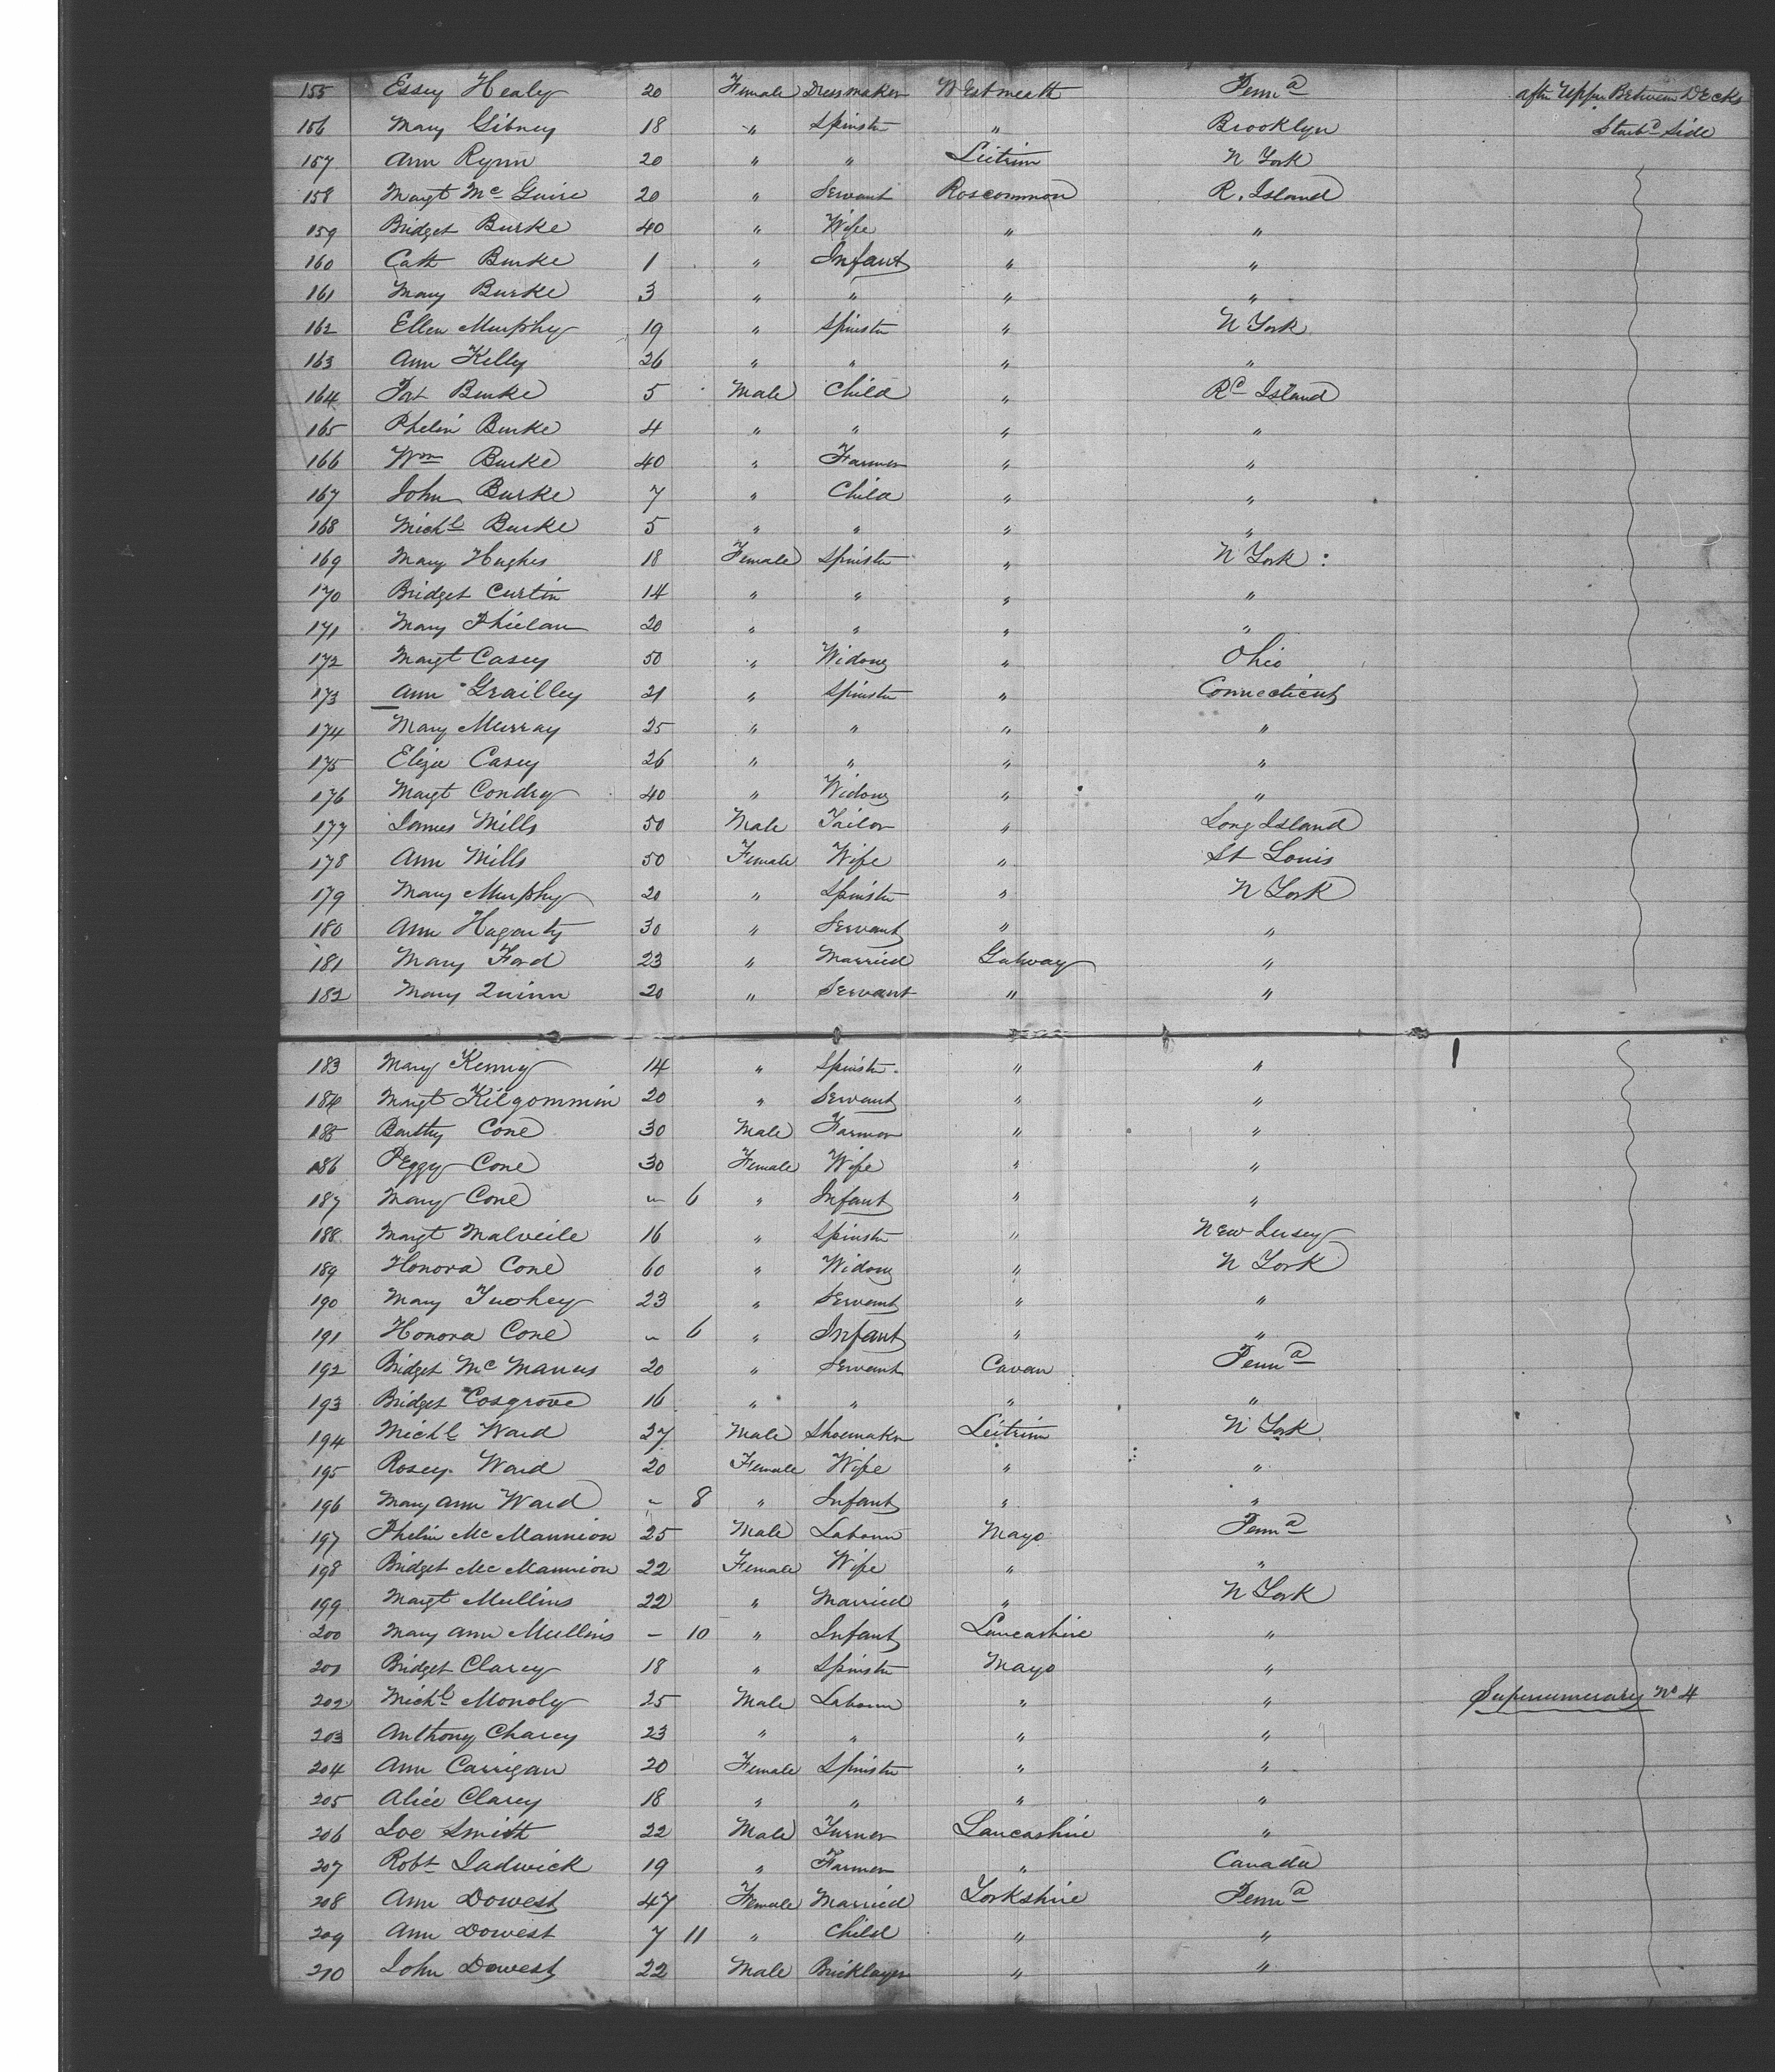 155 Essey Healy 20 Female Dressmaker Westmeath Penn^a after Upper Between Decks
156 Mary Gibney 18 " Spinster " Brooklyn Starb^d Side
157 Ann Rynn 20 " " Leitrim N York
158 Margt Mc Guire 20 " Servant Roscommon R. Island
159 Bridget Burke 40 " Wife " "
160 Cath Burke 1 " Infant " "
161 Mary Burke 3 " " " "
162 Ellen Murphy 19 " Spinster " N York
163 Ann Kelly 26 " " " "
164 Burke 5 Male Child " R^d Island
165 Phelin Burke 4 " " " "
166 Wm Burke 40 " Farmer " "
167 John Burke 7 " Child " "
168 Michl Burke 5 " " " "
169 Mary Hughes 18 Female Spinster " N York :
170 Bridget Curtin 14 " " " "
171 Mary Phielan 20 " " " "
172 Margt Casey 50 " Widow " Ohio
173 Ann Grailley 21 " Spinster " Connecticut
174 Mary Murray 25 " " " "
175 Eliza Casey 26 " " " "
176 Margt Condry 40 " Widow " "
177 James Mills 50 Male Tailor " Long Island
178 Ann Mills 50 Female Wife " St Louis
179 Mary Murphy 20 " Spinster " N York
180 Ann Hagarty 30 " Servant " "
181 Mary Ford 23 " Married Galway "
182 Mary Quinn 20 " Servant " "
183 Mary Kenny 14 " Spinster " " 1
184 Margt Kilgommin 20 " Servant " "
185 Barthy Cone 30 Male Farmer " "
186 Peggy Cone 30 Female Wife " "
187 Mary Cone " 6 " Infant " "
188 Margt Malveile 16 " Spinster " New Jersey
189 Honora Cone 60 " Widow " N York
190 Mary Tuohey 23 " Servant " "
191 Honora Cone " 6 " Infant " "
192 Bridget Mc Manus 20 " Servant Cavan Penn^a
193 Bridget Cosgrove 16 " " " "
194 Michl Ward 27 Male Shoemaker Leitrim N York
195 Rosey Ward 20 Female Wife " "
196 Mary Ann Ward - 8 " Infant " "
197 Phelim Mc Mannion 25 Male Labourer Mayo Penn^a
198 Bridget Mc Mannion 22 Female Wife " "
199 Margt Mullins 22 " Married " N York
200 Mary Ann Mullins - 10 " Infant Lancashire "
201 Bridget Clarey 18 " Spinster Mayo "
202 Michl Monoly 25 Male Labourer " " Supernumerary No 4
203 Anthony Charey 23 " " " "
204 Ann Carrigan 20 Female Spinster " "
205 Alice Clarey 18 " " " "
206 Joe Smith 22 Male Turner Lancashire "
207 Robt Ladwick 19 " Farmer " Canada
208 Ann Dowest 47 Female Married Yorkshire Penn^a
209 Ann Dowest 7 11 " Child " "
210 John Dowest 22 Male Bricklayer " "